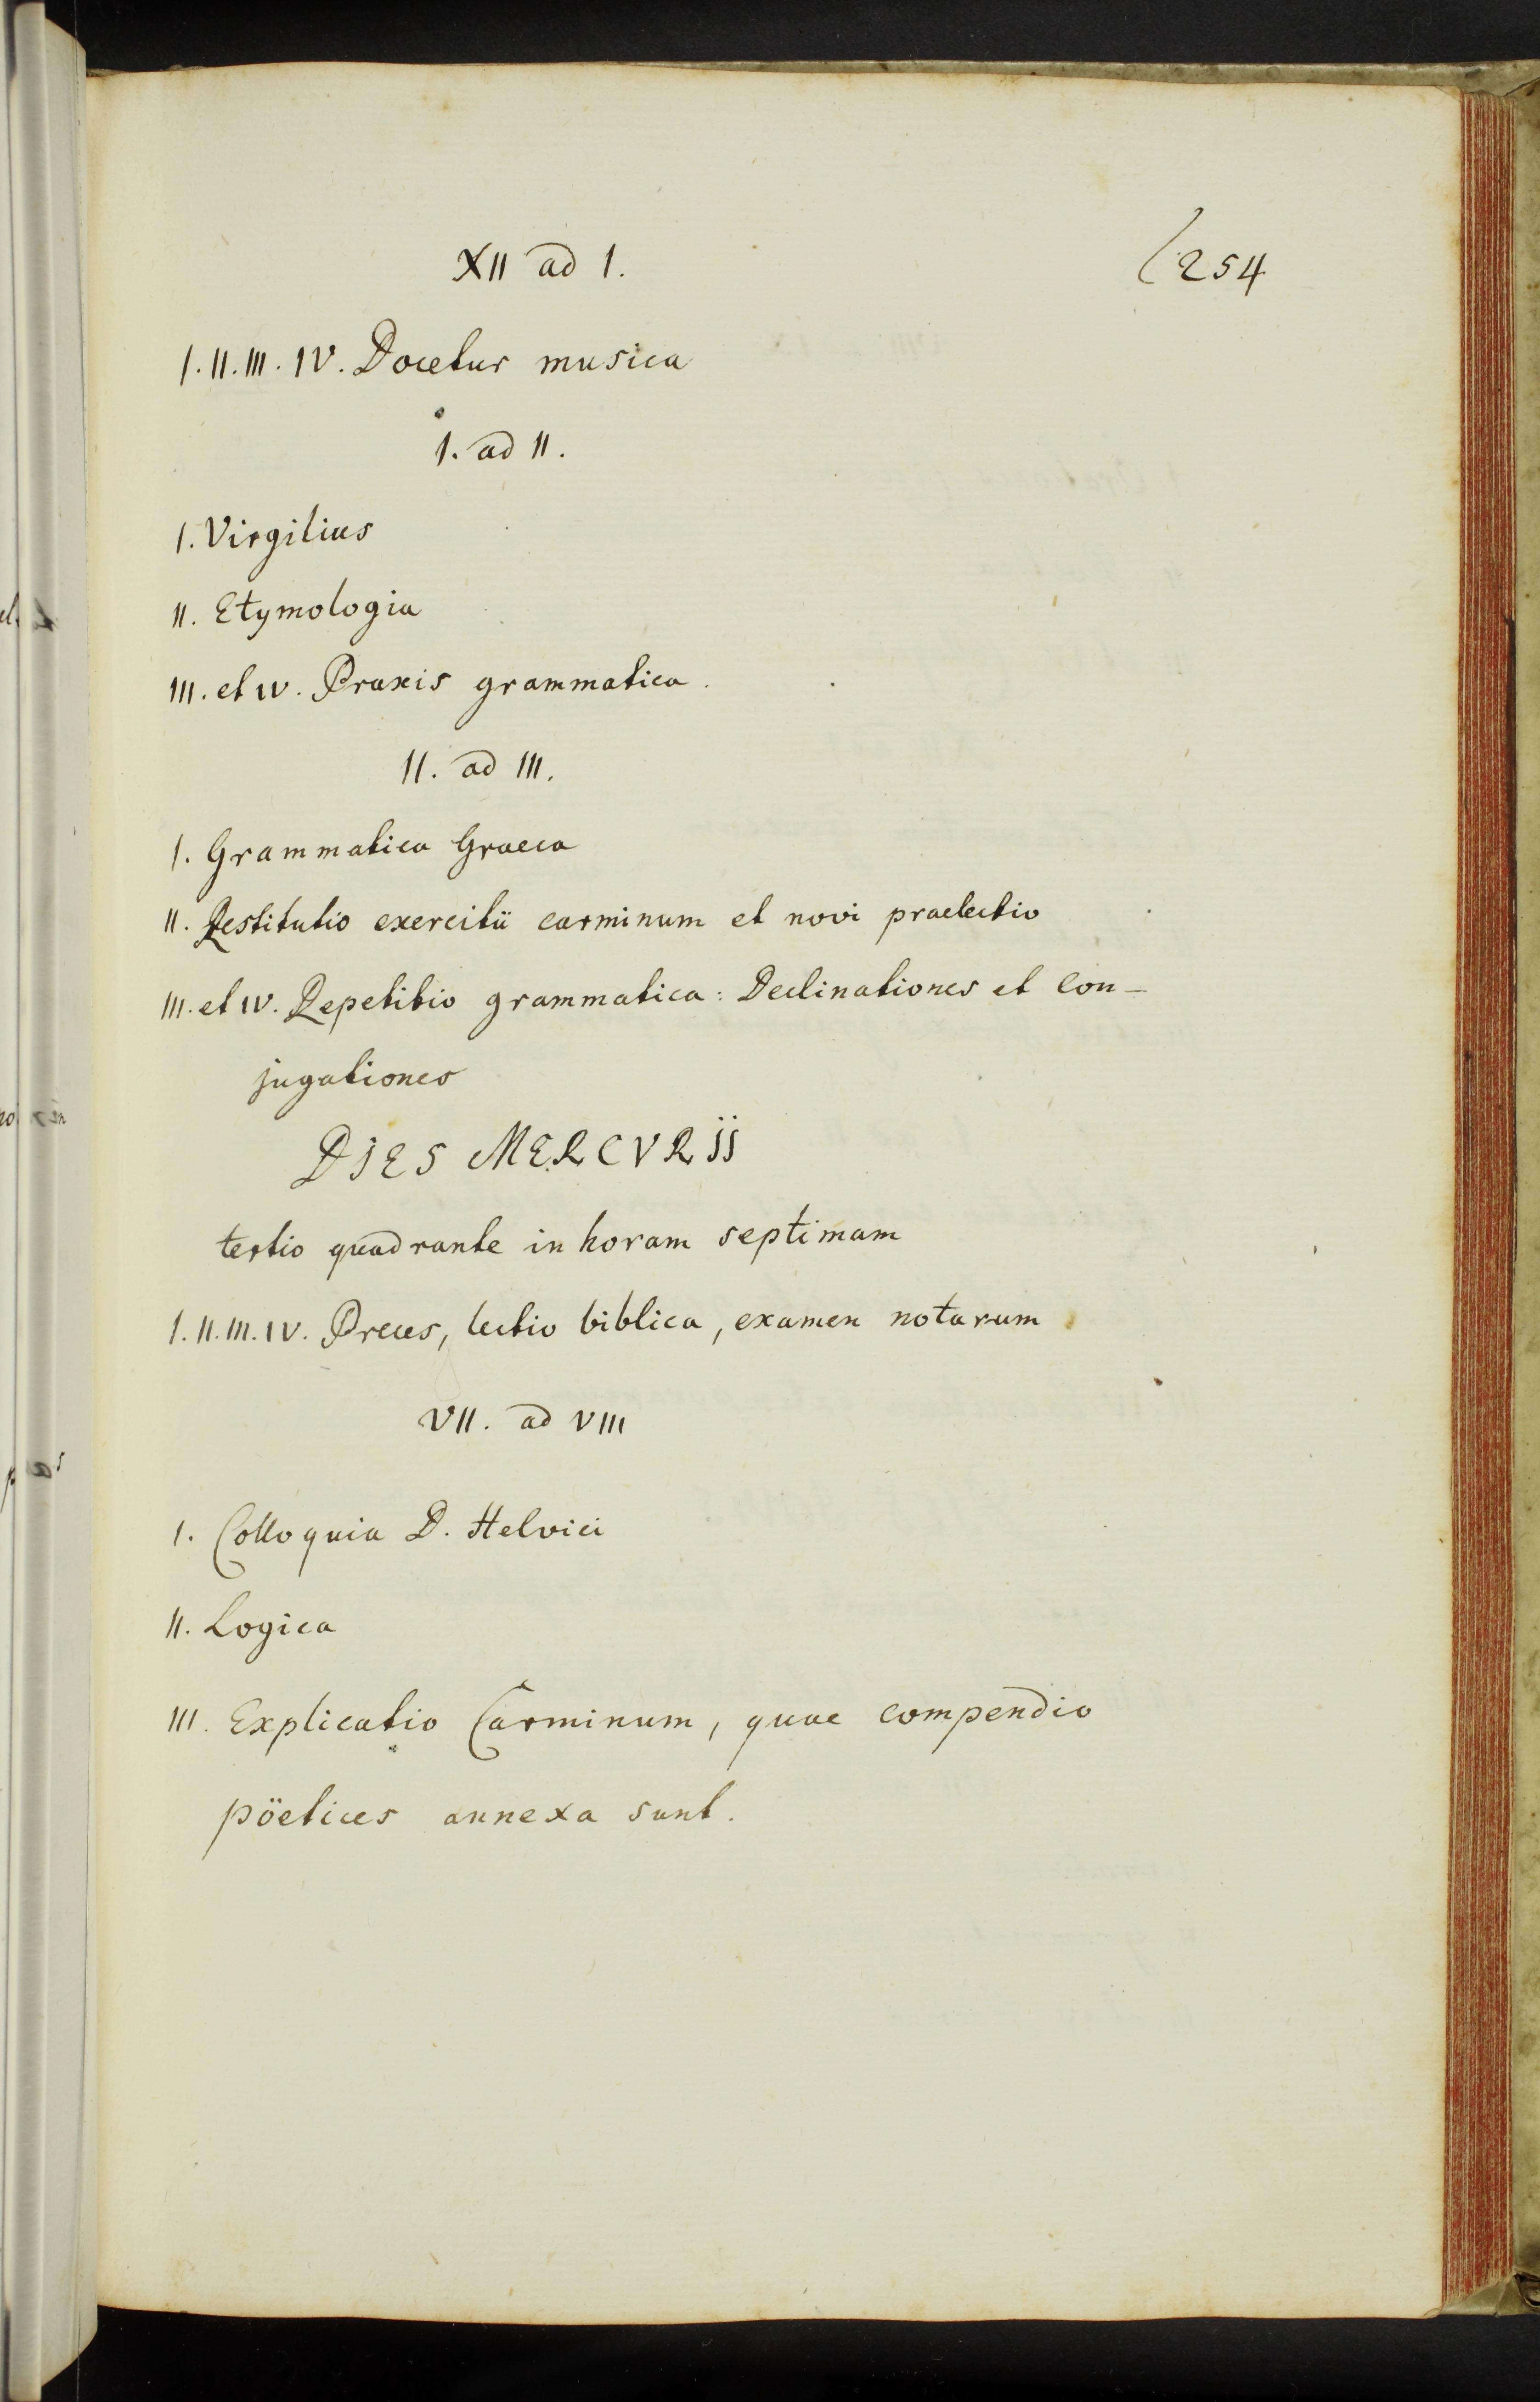 254
XII ad I.
I. II. III. IV. Docetur musica
I. ad II.
I. Virgilius
II. Etymologia
III. et IV. Praxis grammatica.
II. ad III.
I. Grammatica Graeca
II. Restitutio exercitii carminum et novi praelectio
III. et IV. Repetitio grammatica: Declinationes et Con-
jugationes
DJES MERCVRIJ
tertio quadrante in horam septimam
I. II. III. IV. Preces, lectio biblica, examen notarum
VII. ad VIII
I. Colloquia D. Helvici
II. Logica
III. Explicatio Carminum, quae compendio
pöetices annexa sunt.